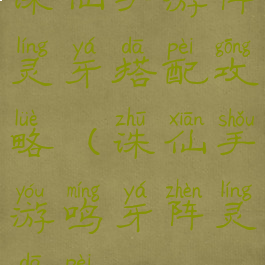 诛仙手游阵
líng yá dā pèi gōng
灵牙搭配攻
lüè zhū xiān shǒu
略（诛仙手
yóu míng yá zhèn líng
游鸣牙阵灵
dā pèi